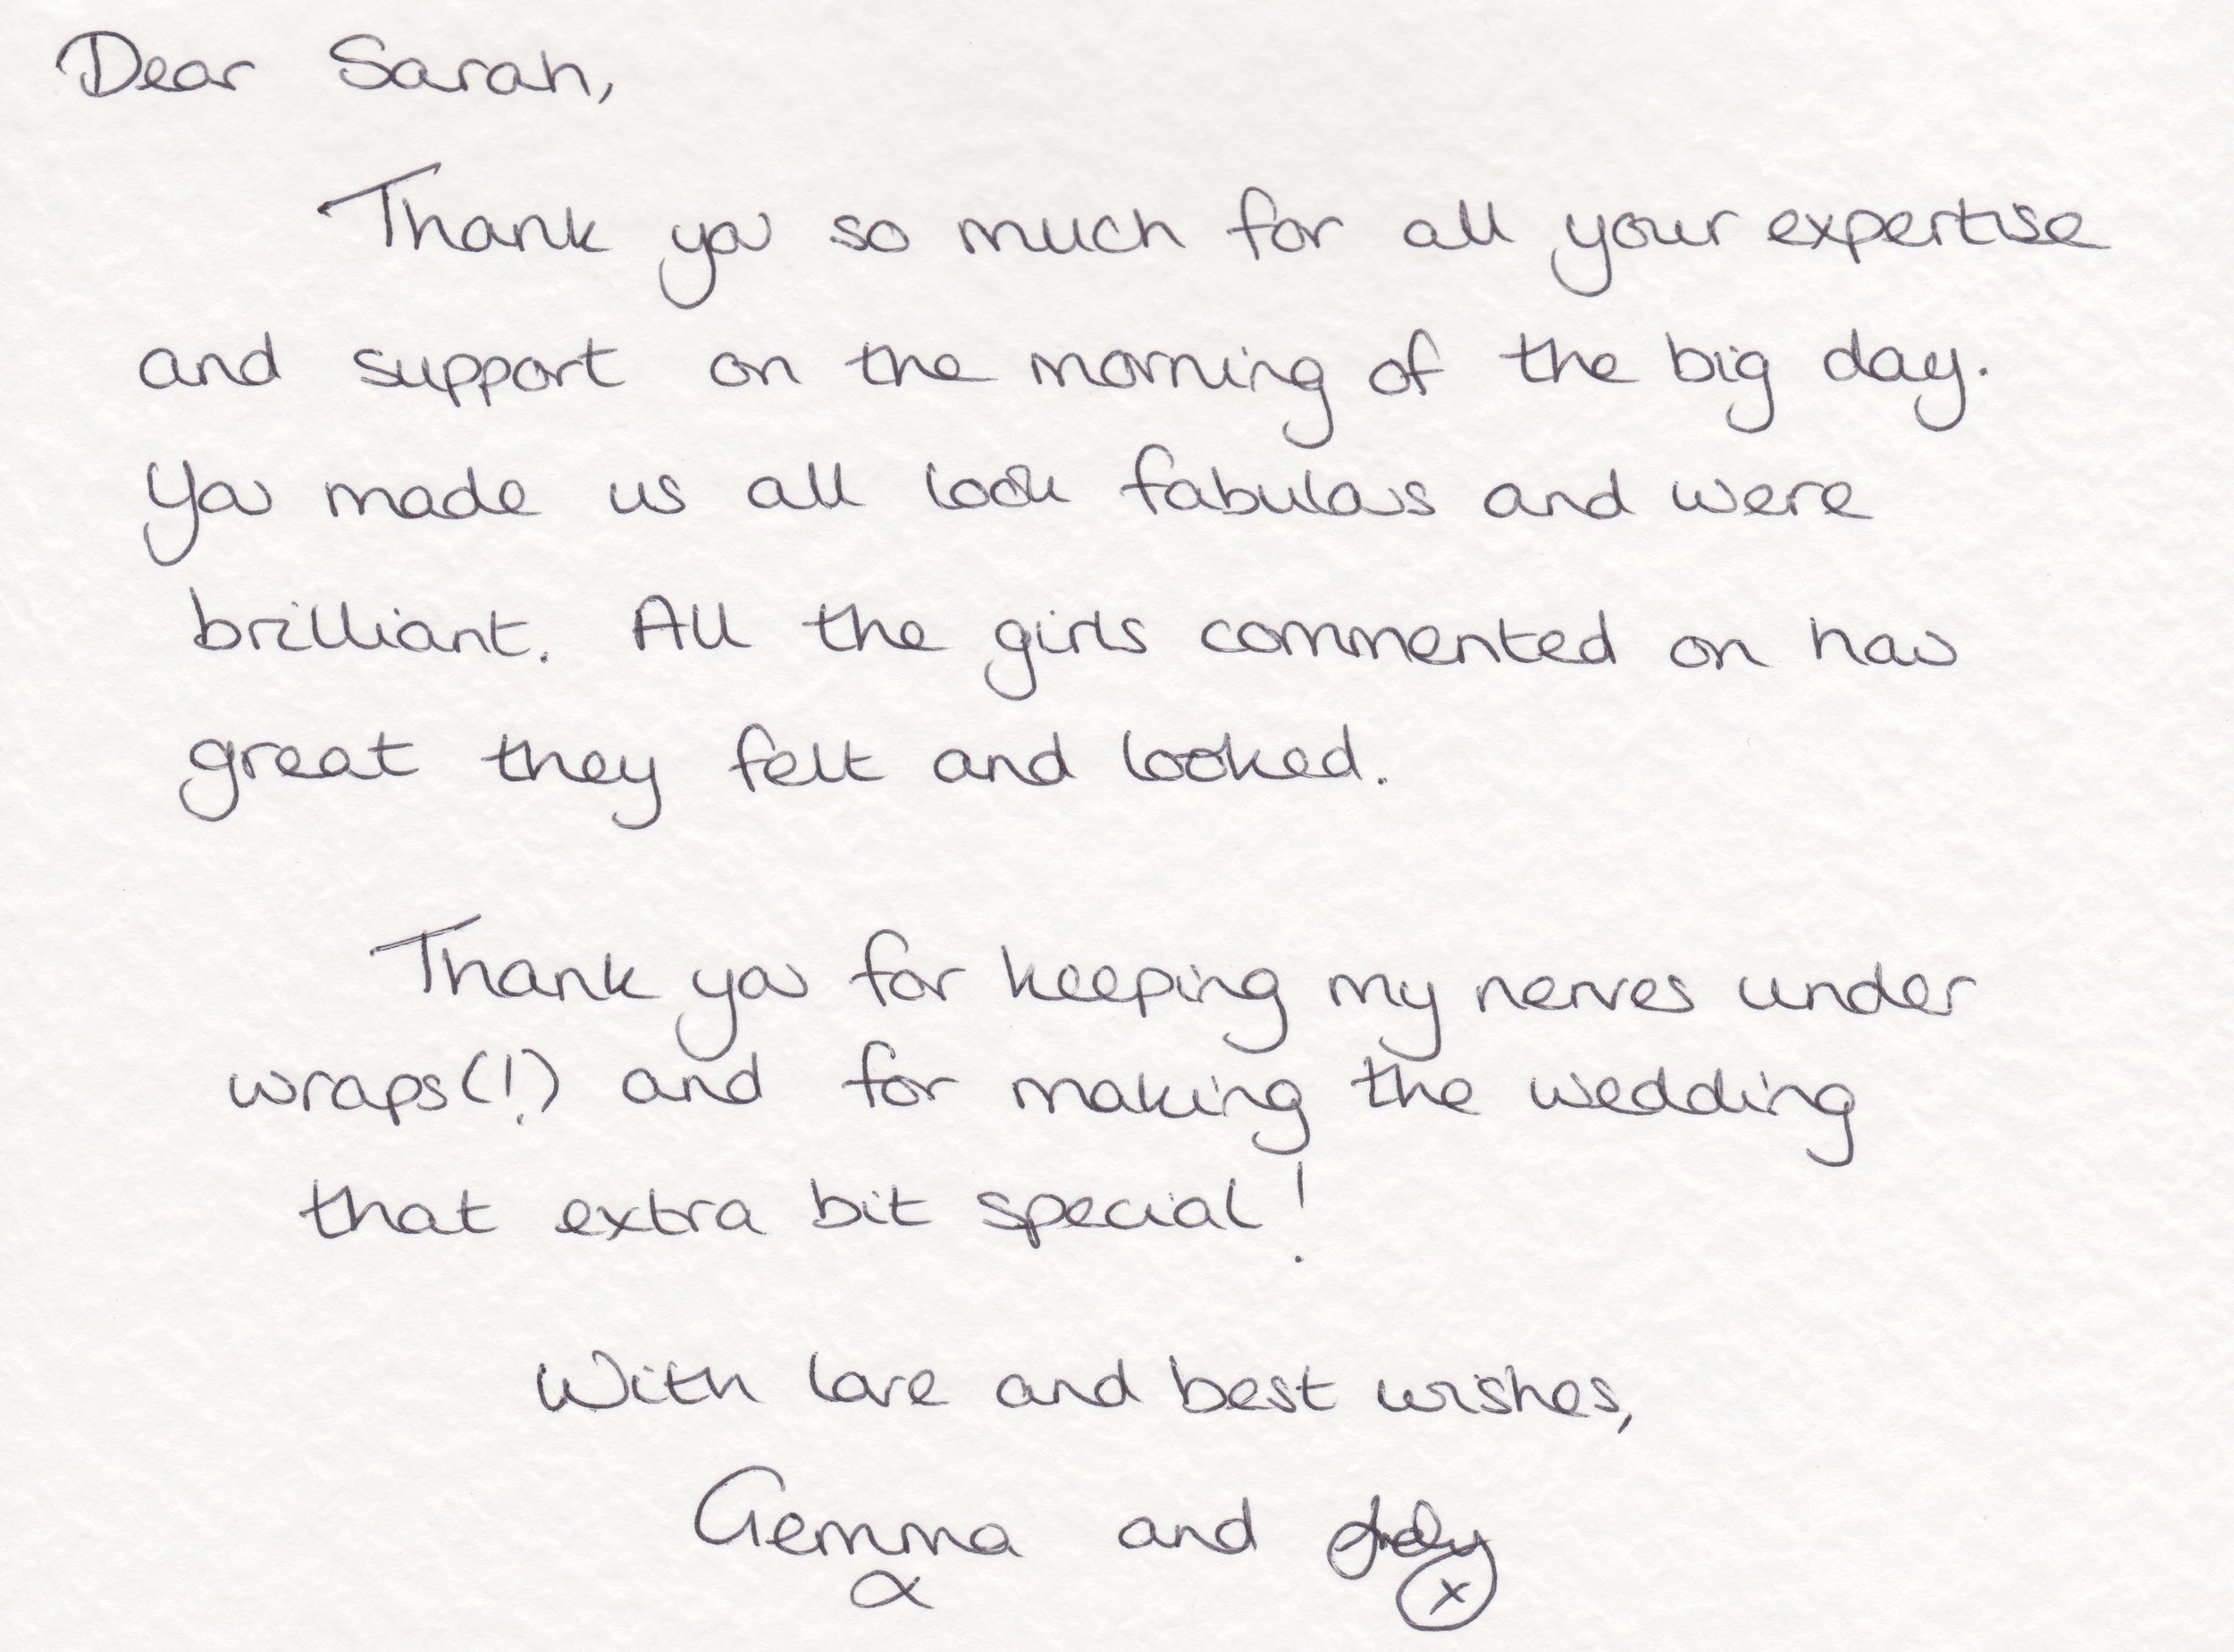 Dear Sarah,
Thank you so much for all your expertise
and support on the morning of the big day.
You made us all look fabulous and were
brilliant. All the girls commented on how
great they felt and looked.
Thank you for keeping my nerves under
wraps(!) and for making the wedding
that extra bit special!
With love and best wishes,
Gemma and
x x